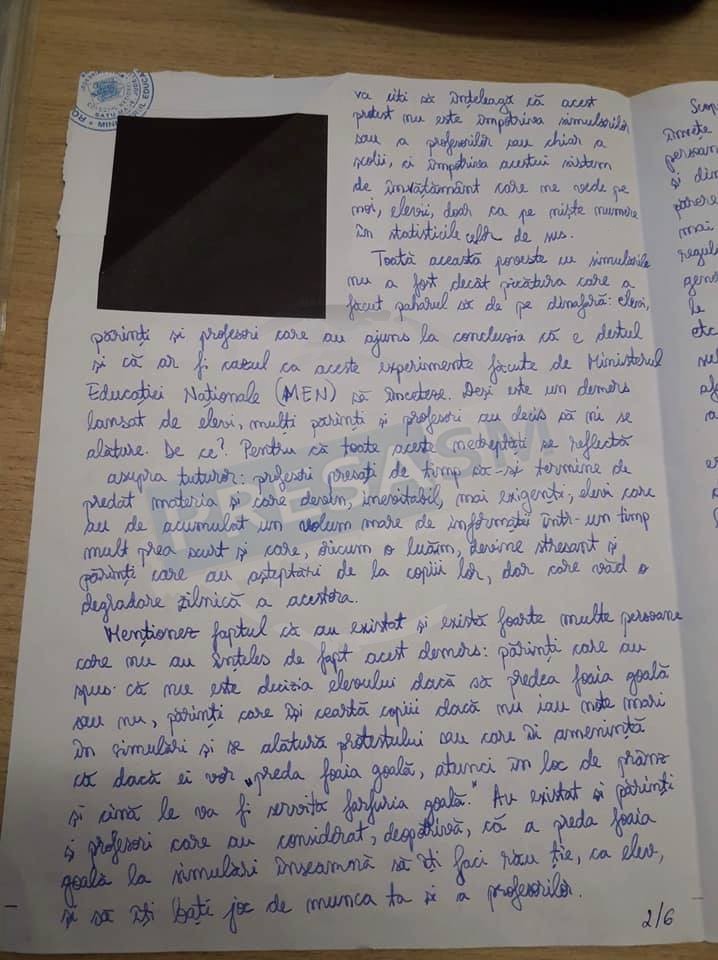 va citi să înțeleagă că acest
protest nu este împotriva simulărilor
sau a profesorilor sau chiar a
școlii, ci împotriva acestui sistem
de învățământ care ne vede pe
noi, elevii, doar ca pe niște numere
în statisticile celor de sus.
Toată această poveste cu simulările
nu a fost decât picătura care a
făcut paharul să de pe dinafară: elevi,
părinți și profesori care au ajuns la concluzia că e destul
și că ar fi cazul ca aceste experimente făcute de Ministerul
Educației Naționale (MEN) să înceteze. Deși este un demers
lansat de elevi, mulți părinți și profesori au decis să ni se
alăture. De ce? Pentru că toate aceste nedreptăți se reflectă
asupra tuturor: profesori presați de timp să-și termine de
predat materia și care devin, inevitabil, mai exigenți, elevi care
au de acumulat un volum mare de informații într-un timp
mult prea scurt și care, oricum o luăm, devine stresant și
părinți care au așteptări de la copiii lor, dar care văd o
degradare zilnică a acestora.
Menționez faptul că au existat și există foarte multe persoane
care nu au înțeles de fapt acest demers: părinți care au
spus că nu este decizia elevului dacă să predea foaia goală
sau nu, părinți care își ceartă copiii dacă nu iau note mari
în simulări și se alătură protestului sau care îi amenință
că dacă ei vor „preda foaia goală, atunci în loc de prânz
și cină le va fi servită farfuria goală." Au existat și părinți
și profesori care au considerat, deopotrivă, că a preda foaia
goală la simulări înseamnă să îți faci rău ție, ca elev,
și să îți bați joc de munca ta și a profesorilor.
2/6
PRESASM
învețe
persoan
și din
părere
mai
regul
gene
le
etc